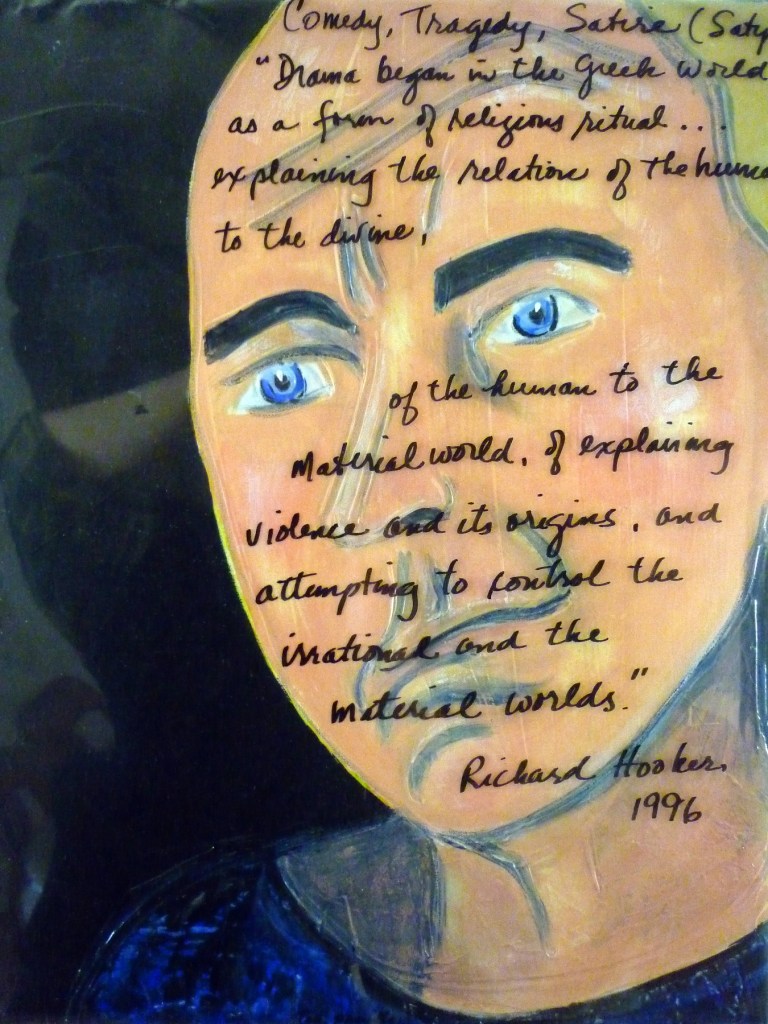 Comedy, Tragedy, Satire (Saty
"Drama began in the Greek world
as a form of religious ritual...
explaining the relation of the huma
to the divine,
of the human to the
material world, of explaining
violence and its origins, and
attempting to control the
irrational and the
material worlds."
Richard Hooker,
1996